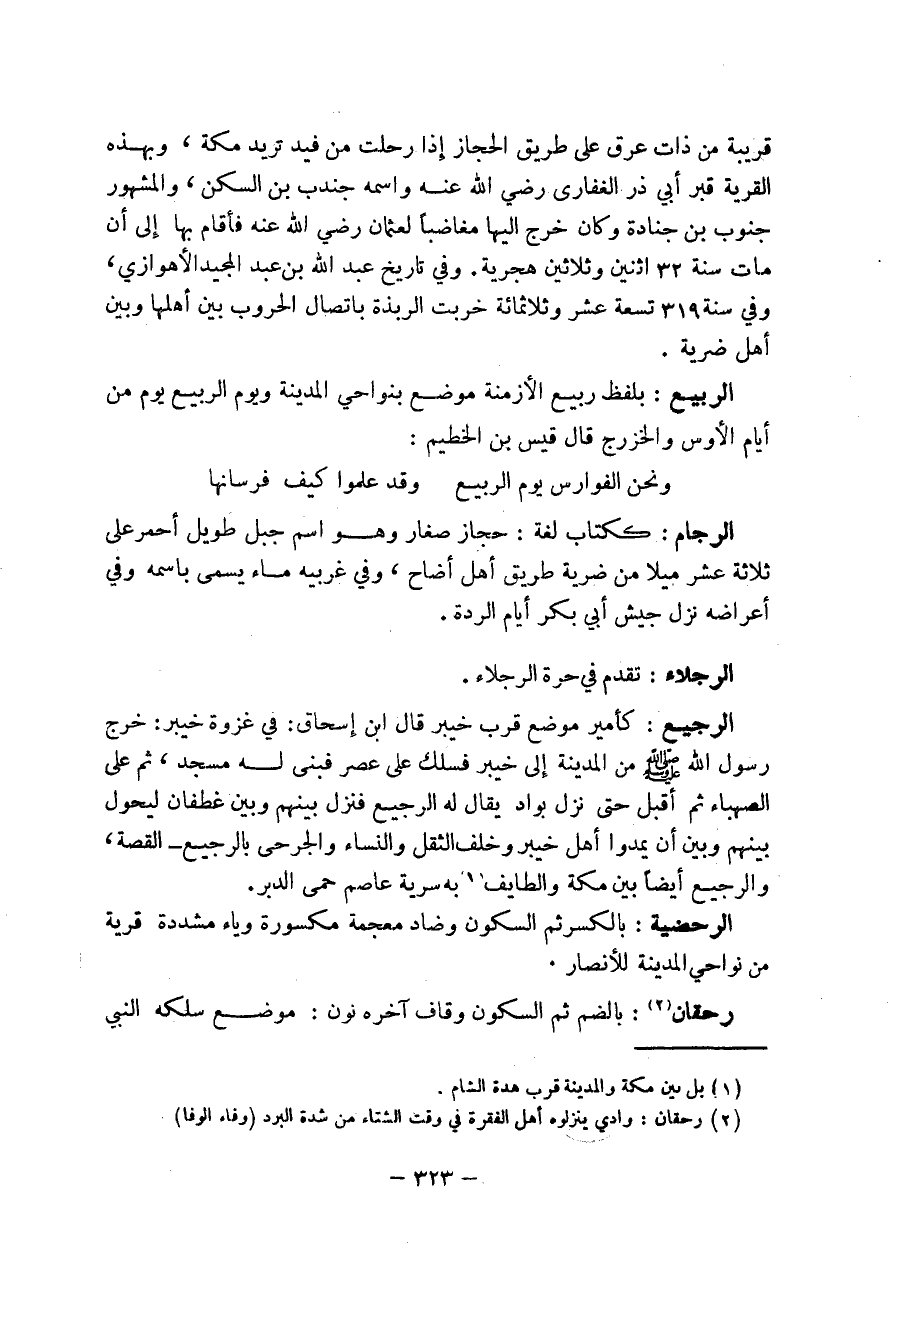 قريبة من ذات عرق على طريق الحجاز إذا رحلت من فيد تريد مكة ، وبهذه
القرية قبر أبي ذر الغفارى رضي الله عنه واسمه جندب بن السكن ، والمشهور
جنوب بن جنادة وكان خرج اليها مغاضباً لعثمان رضي الله عنه فأقام بها إلى أن
مات سنة ٣٢ اثنين وثلاثين هجرية . وفي تاريخ عبد الله بن عبد المجيد الأهوازي ،
وفي سنة ٣١٩ تسعة عشر وثلاثمائة خربت الربذة باتصال الحروب بين أهلها وبين
أهل ضرية .
الربيع : بلفظ ربيع الأزمنة موضع بنواحي المدينة ويوم الربيع يوم من
أيام الأوس والخزرج قال قيس بن الخطيم :
ونحن الفوارس يوم الربيع وقد علموا كيف فرسانها
الرجام : ككتاب لغة : حجاز صغار وهو اسم جبل طويل أحمر على
ثلاثة عشر ميلا من ضرية طريق أهل أضاح ، وفي غربيه ماء يسمى باسمه وفي
أعراضه نزل جيش أبي بكر أيام الردة .
الرجلاء : تقدم في حرة الرجلاء .
الرجيع : كأمير موضع قرب خيبر قال ابن إسحاق : في غزوة خيبر : خرج
رسول الله ﷺ من المدينة إلى خيبر فسلك على عصر فبنى له مسجد ، ثم على
الصهباء ثم أقبل حتى نزل بواد يقال له الرجيع فنزل بينهم وبين غطفان ليحول
بينهم وبين أن يمدوا أهل خيبر وخلف الثقل والنساء والجرحى بالرجيع ــ القصة ،
والرجيع أيضاً بين مكة والطايف (١) به سرية عاصم حمى الدبر .
الرحضية : بالكسر ثم السكون وضاد معجمة مكسورة وياء مشددة قرية
من نواحي المدينة للأنصار .
رحقان (٢) : بالضم ثم السكون وقاف آخره نون : موضع سلكه النبي
(١) بل بين مكة والمدينة قرب هدة الشام .
(٢) رحقان : وادي ينزلوه أهل الفقرة في وقت الشتاء من شدة البرد (وفاء الوفا)
– ٣٢٣ –